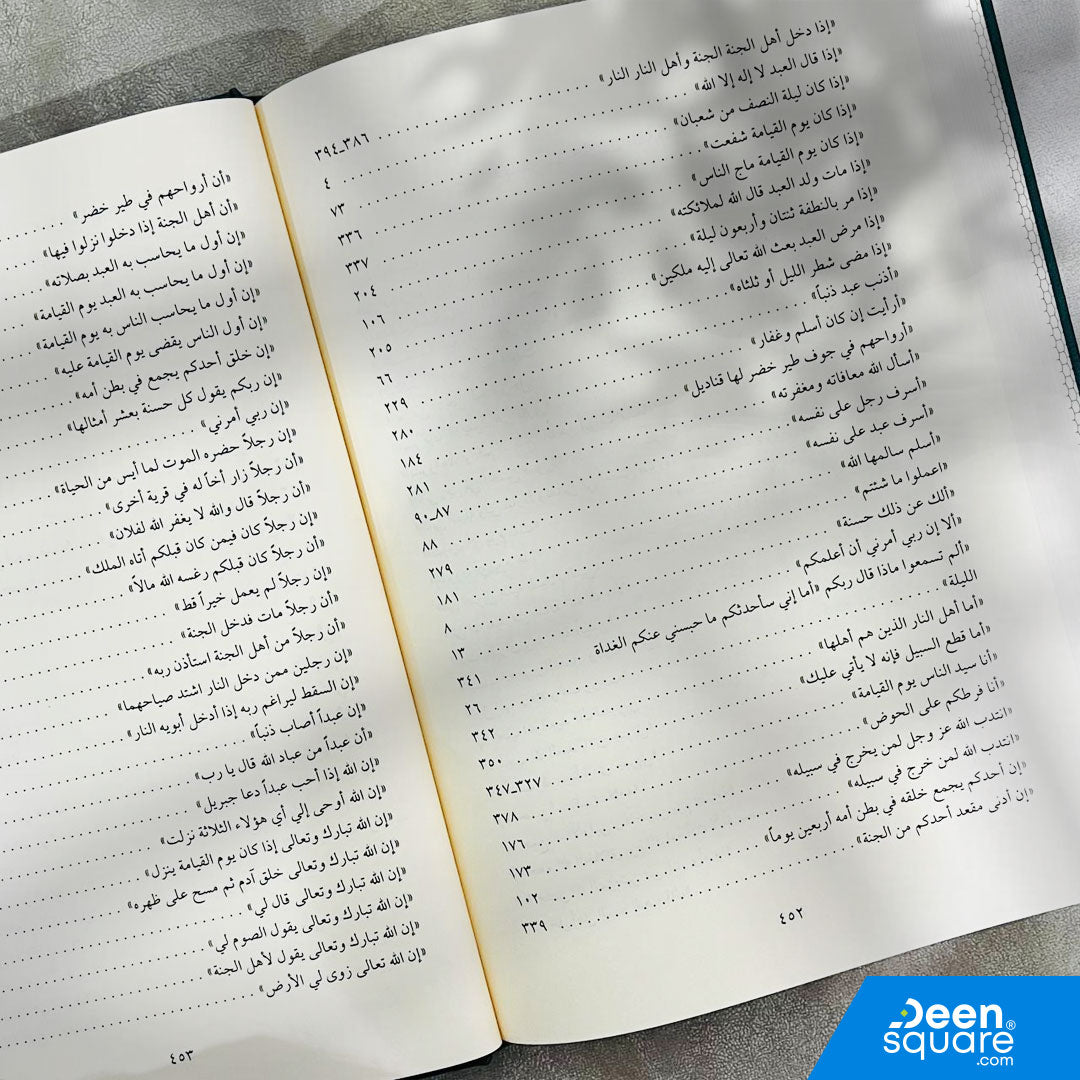 «إذا دخل أهل الجنة الجنة وأهل النار النار» ٣٨٦ـ٣٩٤
«إذا قال العبد لا إله إلا الله» ٤
«إذا كان ليلة النصف من شعبان» ٧٣
«إذا كان يوم القيامة شفعت» ٣٣٦
«إذا كان يوم القيامة ماج الناس» ٣٣٧
«إذا مات ولد العبد قال الله لملائكته» ٢٠٤
«إذا مر بالنطفة ثنتان وأربعون ليلة» ١٠٦
«إذا مرض العبد بعث الله تعالى إليه ملكين» ٢٠٥
«إذا مضى شطر الليل أو ثلثاه» ٦٦
«أذنب عبد ذنباً» ٢٢٩
«أرأيت إن كان أسلم وغفار» ٢٨٠
«أرواحهم في جوف طير خضر لها قناديل» ١٨٤
«أسأل الله معافاته ومغفرته» ٢٨١
«أسرف رجل على نفسه» ٨٧ـ٩٠
«أسرف عبد على نفسه» ٨٨
«أسلم سالمها الله» ٢٧٩
«اعملوا ما شئتم» ١٨١
«ألك عن ذلك حسنة» ٨
«ألا إن ربي أمرني أن أعلمكم» ١٣
«ألم تسمعوا ماذا قال ربكم «أما إني سأحدثكم ما حبسني عنكم الغداة ٣٤١
الليلة» ٢٦
«أما أهل النار الذين هم أهلها» ٣٤٢
«أما قطع السبيل فإنه لا يأتي عليك» ٣٥٠
«أنا سيد الناس يوم القيامة» ٣٢٧ـ٣٤٧
«أنا فرطكم على الحوض» ٣٧٨
«انتدب الله عز وجل لمن يخرج في سبيله» ١٧٦
«انتدب الله لمن خرج في سبيله» ١٧٣
«إن أحدكم يجمع خلقه في بطن أمه أربعين يوماً» ١٠٢
«إن أدنى مقعد أحدكم من الجنة» ٣٣٩
٤٥٢
«أن أرواحهم في طير خضر»
«أن أهل الجنة إذا دخلوا نزلوا فيها»
«إن أول ما يحاسب به العبد بصلاته»
«إن أول ما يحاسب به العبد يوم القيامة»
«إن أول ما يحاسب الناس به يوم القيامة»
«إن أول الناس يقضى يوم القيامة عليه»
«إن خلق أحدكم يجمع في بطن أمه»
«إن ربكم يقول كل حسنة بعشر أمثالها»
«إن ربي أمرني»
«إن رجلاً حضره الموت لما أيس من الحياة»
«أن رجلاً زار أخاً له في قرية أخرى»
«أن رجلاً قال والله لا يغفر الله لفلان»
«إن رجلاً كان فيمن كان قبلكم أتاه الملك»
«أن رجلاً كان قبلكم رغسه الله مالاً»
«إن رجلاً لم يعمل خيراً قط»
«أن رجلاً مات فدخل الجنة»
«أن رجلاً من أهل الجنة استأذن ربه»
«إن رجلين ممن دخل النار اشتد صياحهما»
«إن السقط ليراغم ربه إذا أدخل أبويه النار»
«إن عبداً أصاب ذنباً»
«أن عبداً من عباد الله قال يا رب»
«إن الله إذا أحب عبداً دعا جبريل»
«إن الله أوحى إلي أي هؤلاء الثلاثة نزلت»
«إن الله تبارك وتعالى إذا كان يوم القيامة ينزل»
«إن الله تبارك وتعالى خلق آدم ثم مسح على ظهره»
«إن الله تبارك وتعالى قال لي»
«إن الله تبارك وتعالى يقول الصوم لي»
«إن الله تبارك وتعالى يقول لأهل الجنة»
«إن الله تعالى زوى لي الأرض»
٤٥٣
Deen
square®
.com